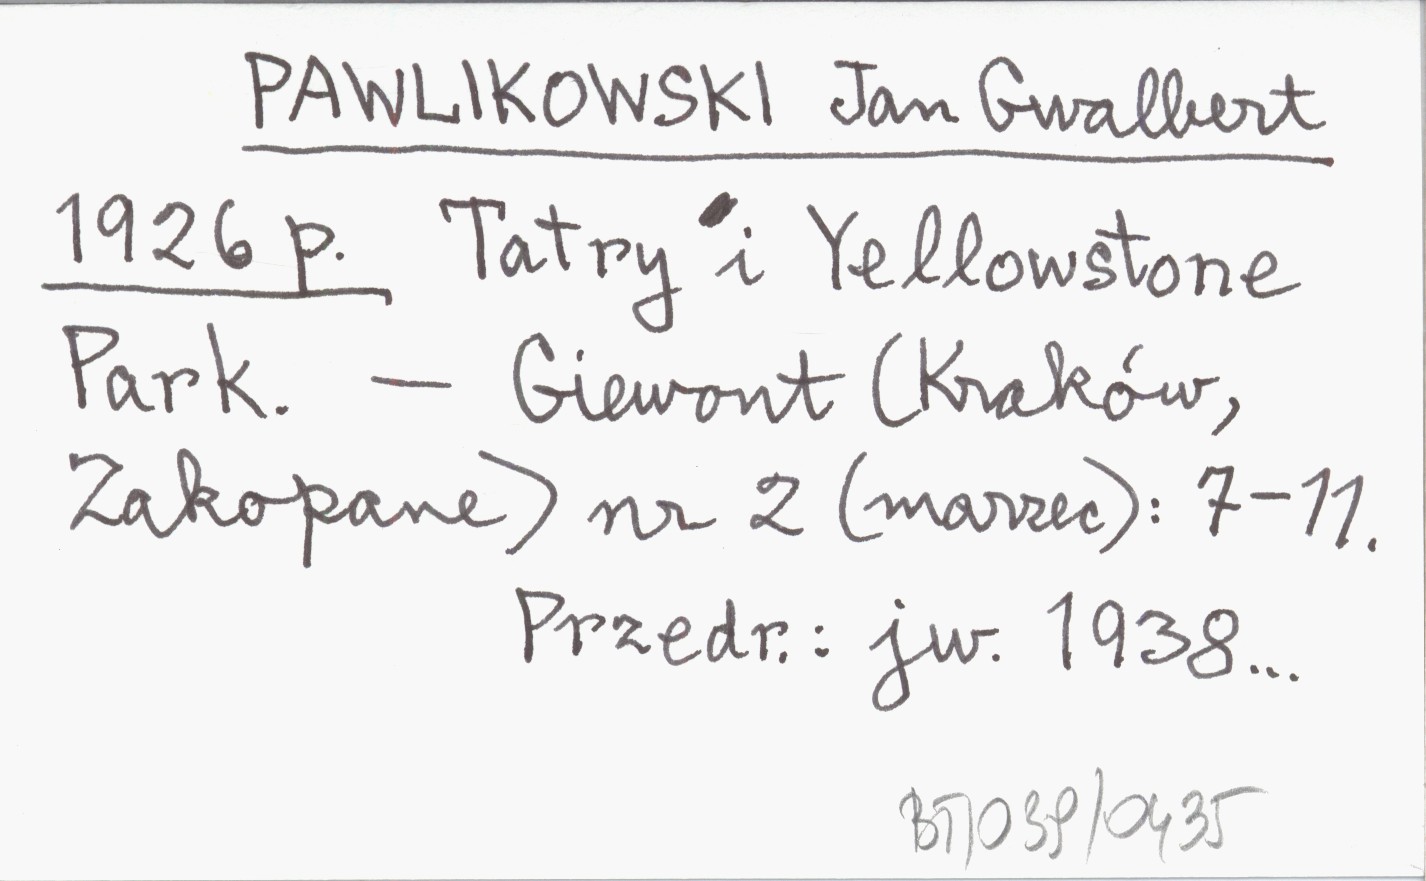 PAWLIKOWSKI Jan Gwalbert
1926 p. Tatry i Yellowstone
Park. — Giewont (Kraków,
Zakopane) nr 2 (marzec): 7-11.
Przedr.: jw. 1938...
BT/039/0435